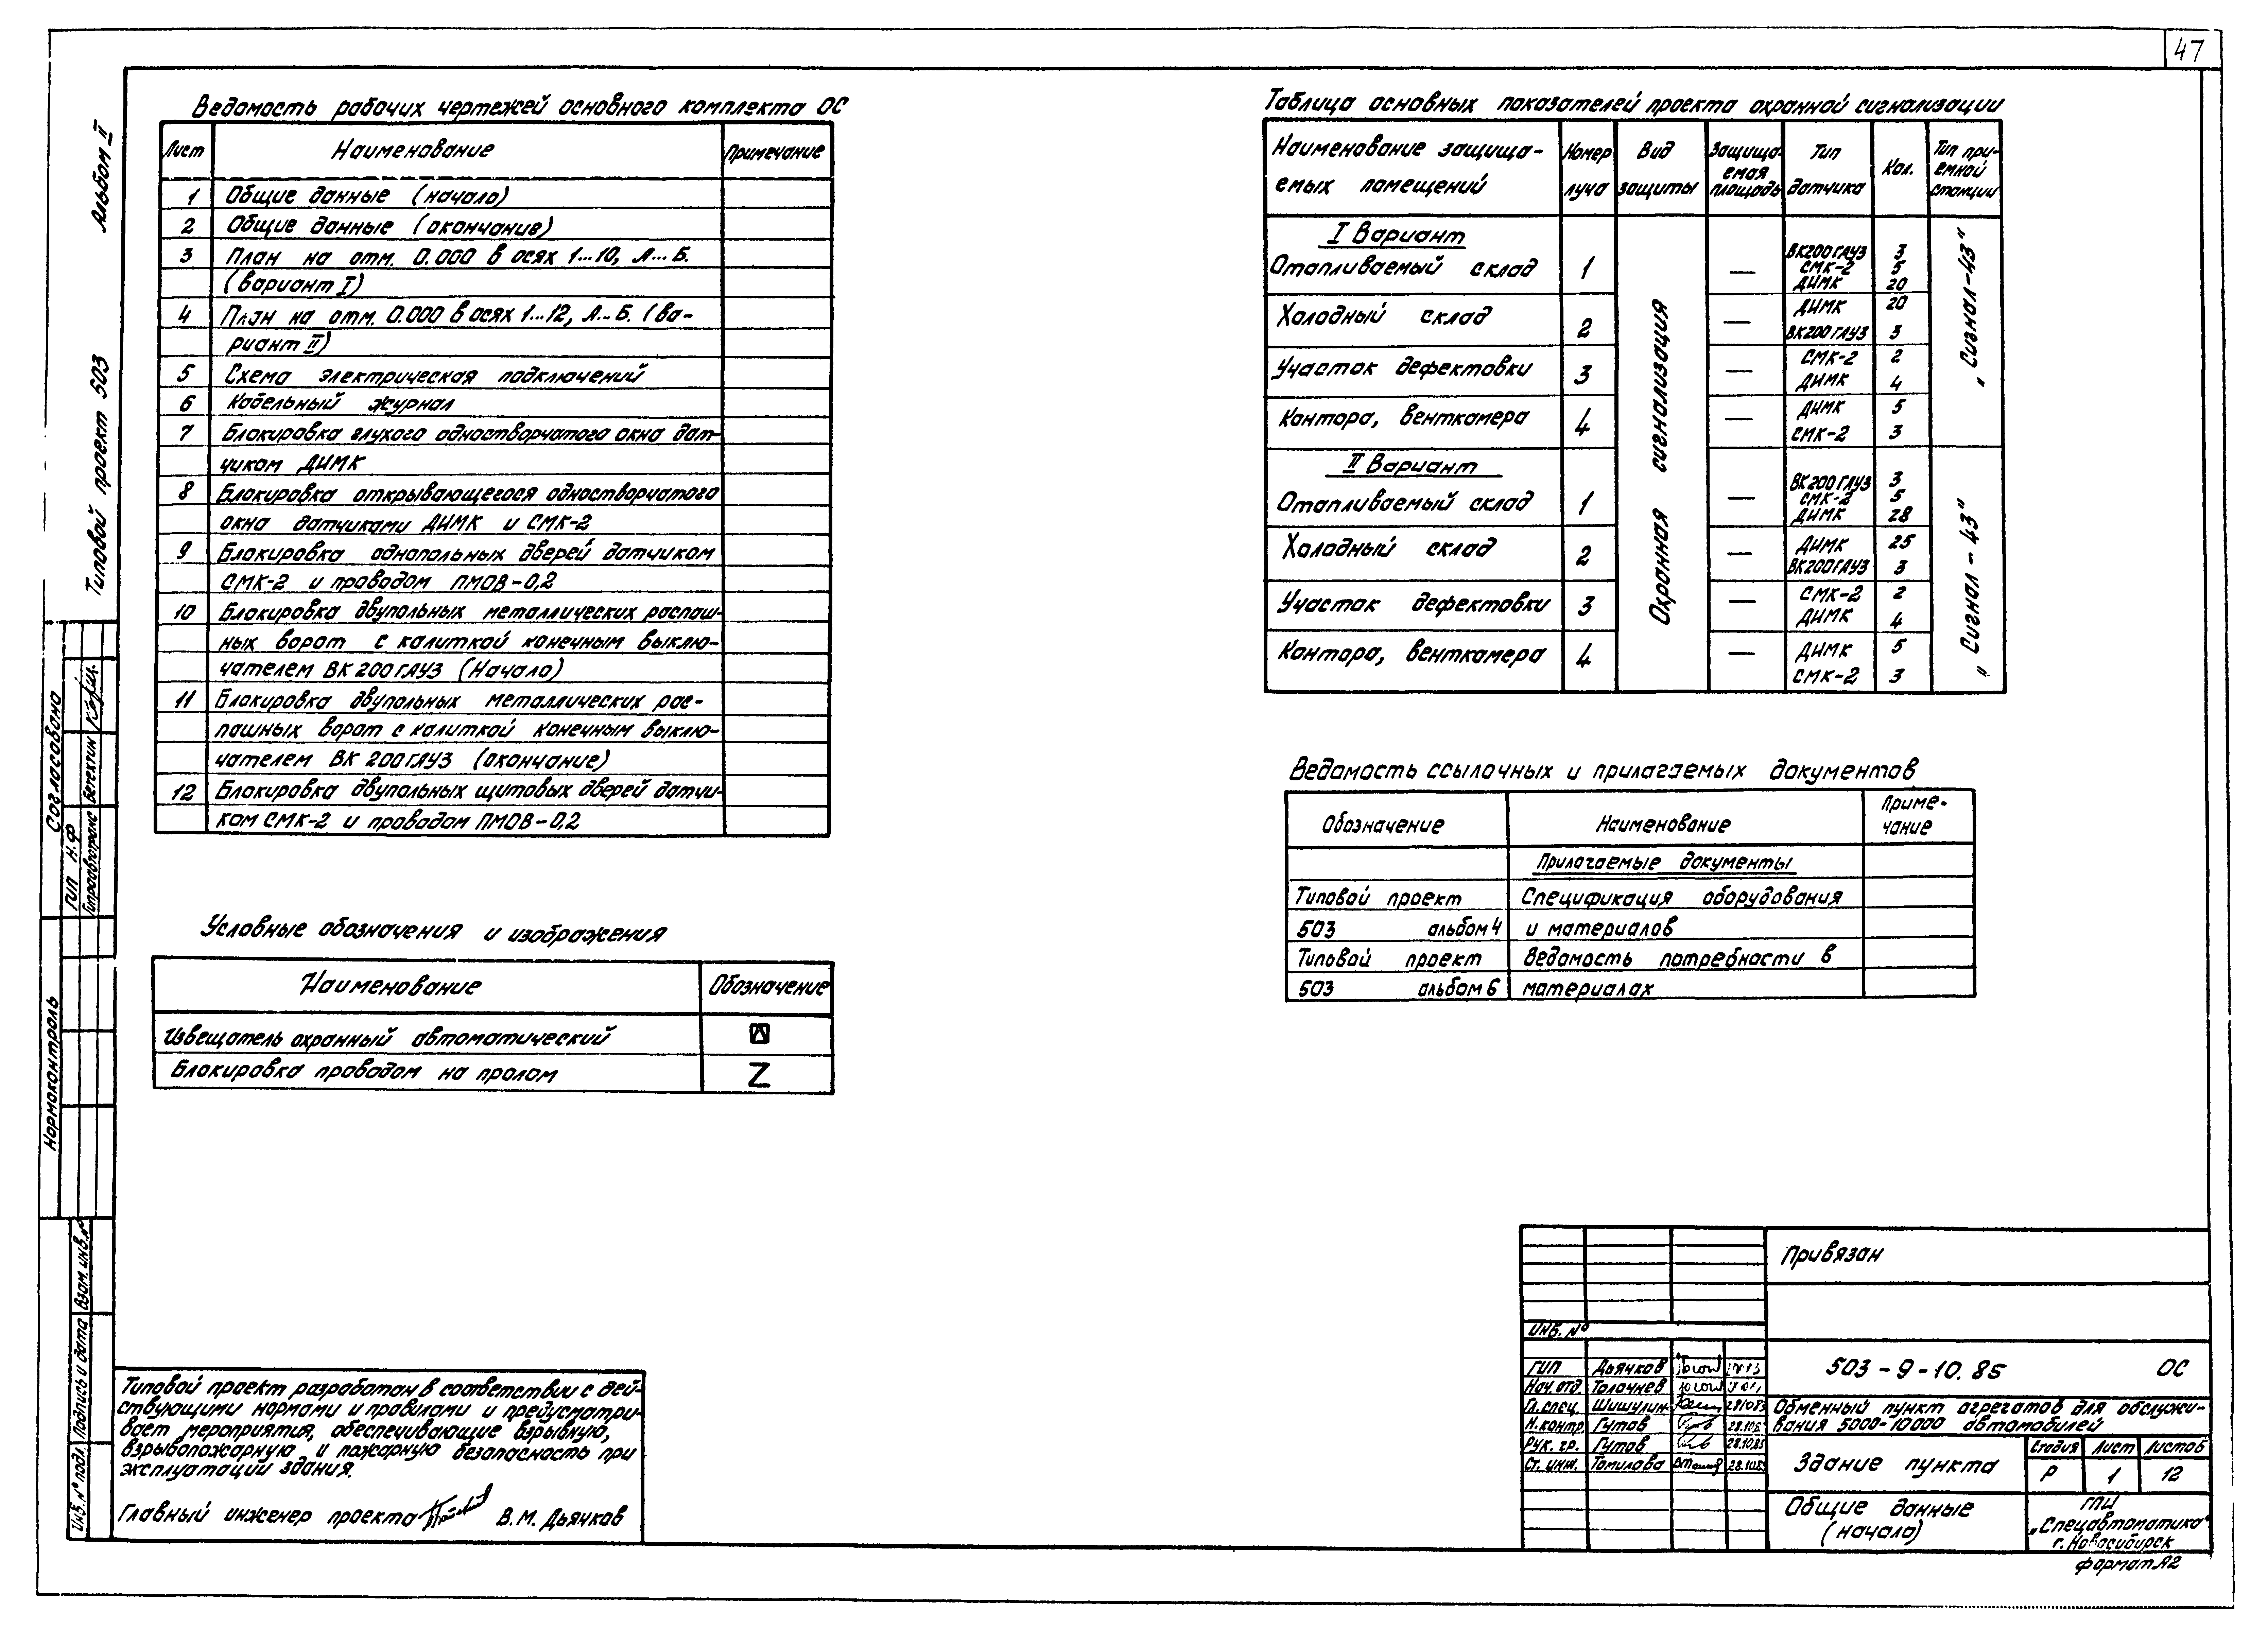 47
Альбом II
Типовой проект 503
Ведомость рабочих чертежей основного комплекта ОС
Лист Наименование Примечание
1 Общие данные (начало)
2 Общие данные (окончание)
3 План на отм. 0.000 в осях 1...10, А...Б.
(вариант I)
4 План на отм. 0.000 в осях 1...12, А...Б. (ва-
риант II)
5 Схема электрическая подключений
6 Кабельный журнал
7 Блокировка глухого одностворчатого окна дат-
чиком ДИМК
8 Блокировка открывающегося одностворчатого
окна датчиками ДИМК и СМК-2
9 Блокировка однопольных дверей датчиком
СМК-2 и проводом ПМОВ-0,2
10 Блокировка двупольных металлических распаш-
ных ворот с калиткой конечным выклю-
чателем ВК 200ГЛУЗ (Начало)
11 Блокировка двупольных металлических рас-
пашных ворот с калиткой конечным выклю-
чателем ВК 200ГЛУЗ (окончание)
12 Блокировка двупольных щитовых дверей датчи-
ком СМК-2 и проводом ПМОВ-0,2
Условные обозначения и изображения
Наименование Обозначение
Извещатель охранный автоматический
Блокировка проводом на пролом
Таблица основных показателей проекта охранной сигнализации
Наименование защища- Номер Вид Защища- Тип Кол. Тип при-
емых помещений луча защиты емая площадь датчика емной станции
I Вариант
Отапливаемый склад 1 — ВК200ГЛУЗ 3
СМК-2 5
ДИМК 20
Холодный склад 2 — ДИМК 20
ВК200ГЛУЗ 3
Участок дефектовки 3 — СМК-2 2
ДИМК 4
Контора, венткамера 4 — ДИМК 5
СМК-2 3
„Сигнал-43"
Охранная сигнализация
II Вариант
Отапливаемый склад 1 — ВК200ГЛУЗ 3
СМК-2 5
ДИМК 28
Холодный склад 2 — ДИМК 25
ВК200ГЛУЗ 3
Участок дефектовки 3 — СМК-2 2
ДИМК 4
Контора, венткамера 4 — ДИМК 5
СМК-2 3
„Сигнал-43"
Ведомость ссылочных и прилагаемых документов
Обозначение Наименование Приме-
чание
Прилагаемые документы
Типовой проект Спецификация оборудования
503 альбом 4 и материалов
Типовой проект Ведомость потребности в
503 альбом 6 материалах
Согласовано
ГИП Н.Ф
Гипроавтотранс Бегектин
Нормоконтроль
Взам. инв. №
Подпись и дата
Инв. № подл.
Типовой проект разработан в соответствии с дей-
ствующими нормами и правилами и предусматри-
вает мероприятия, обеспечивающие взрывную,
взрывопожарную и пожарную безопасность при
эксплуатации здания.
Главный инженер проекта В.М. Дьячков
Привязан
Инв. №
ГИП Дьячков
Нач. отд. Толачнев
Гл. спец. Шишулин 281085
Н. контр. Гутов 28.10.85
Рук. гр. Гутов 28.10.85
Ст. инж. Томилова 28.10.85
503-9-10.85 ОС
Обменный пункт агрегатов для обслужи-
вания 5000-10000 автомобилей
Здание пункта
Стадия Лист Листов
Р 1 12
Общие данные
(начало)
ГПИ
„Спецавтоматика"
г. Новосибирск
формат А2